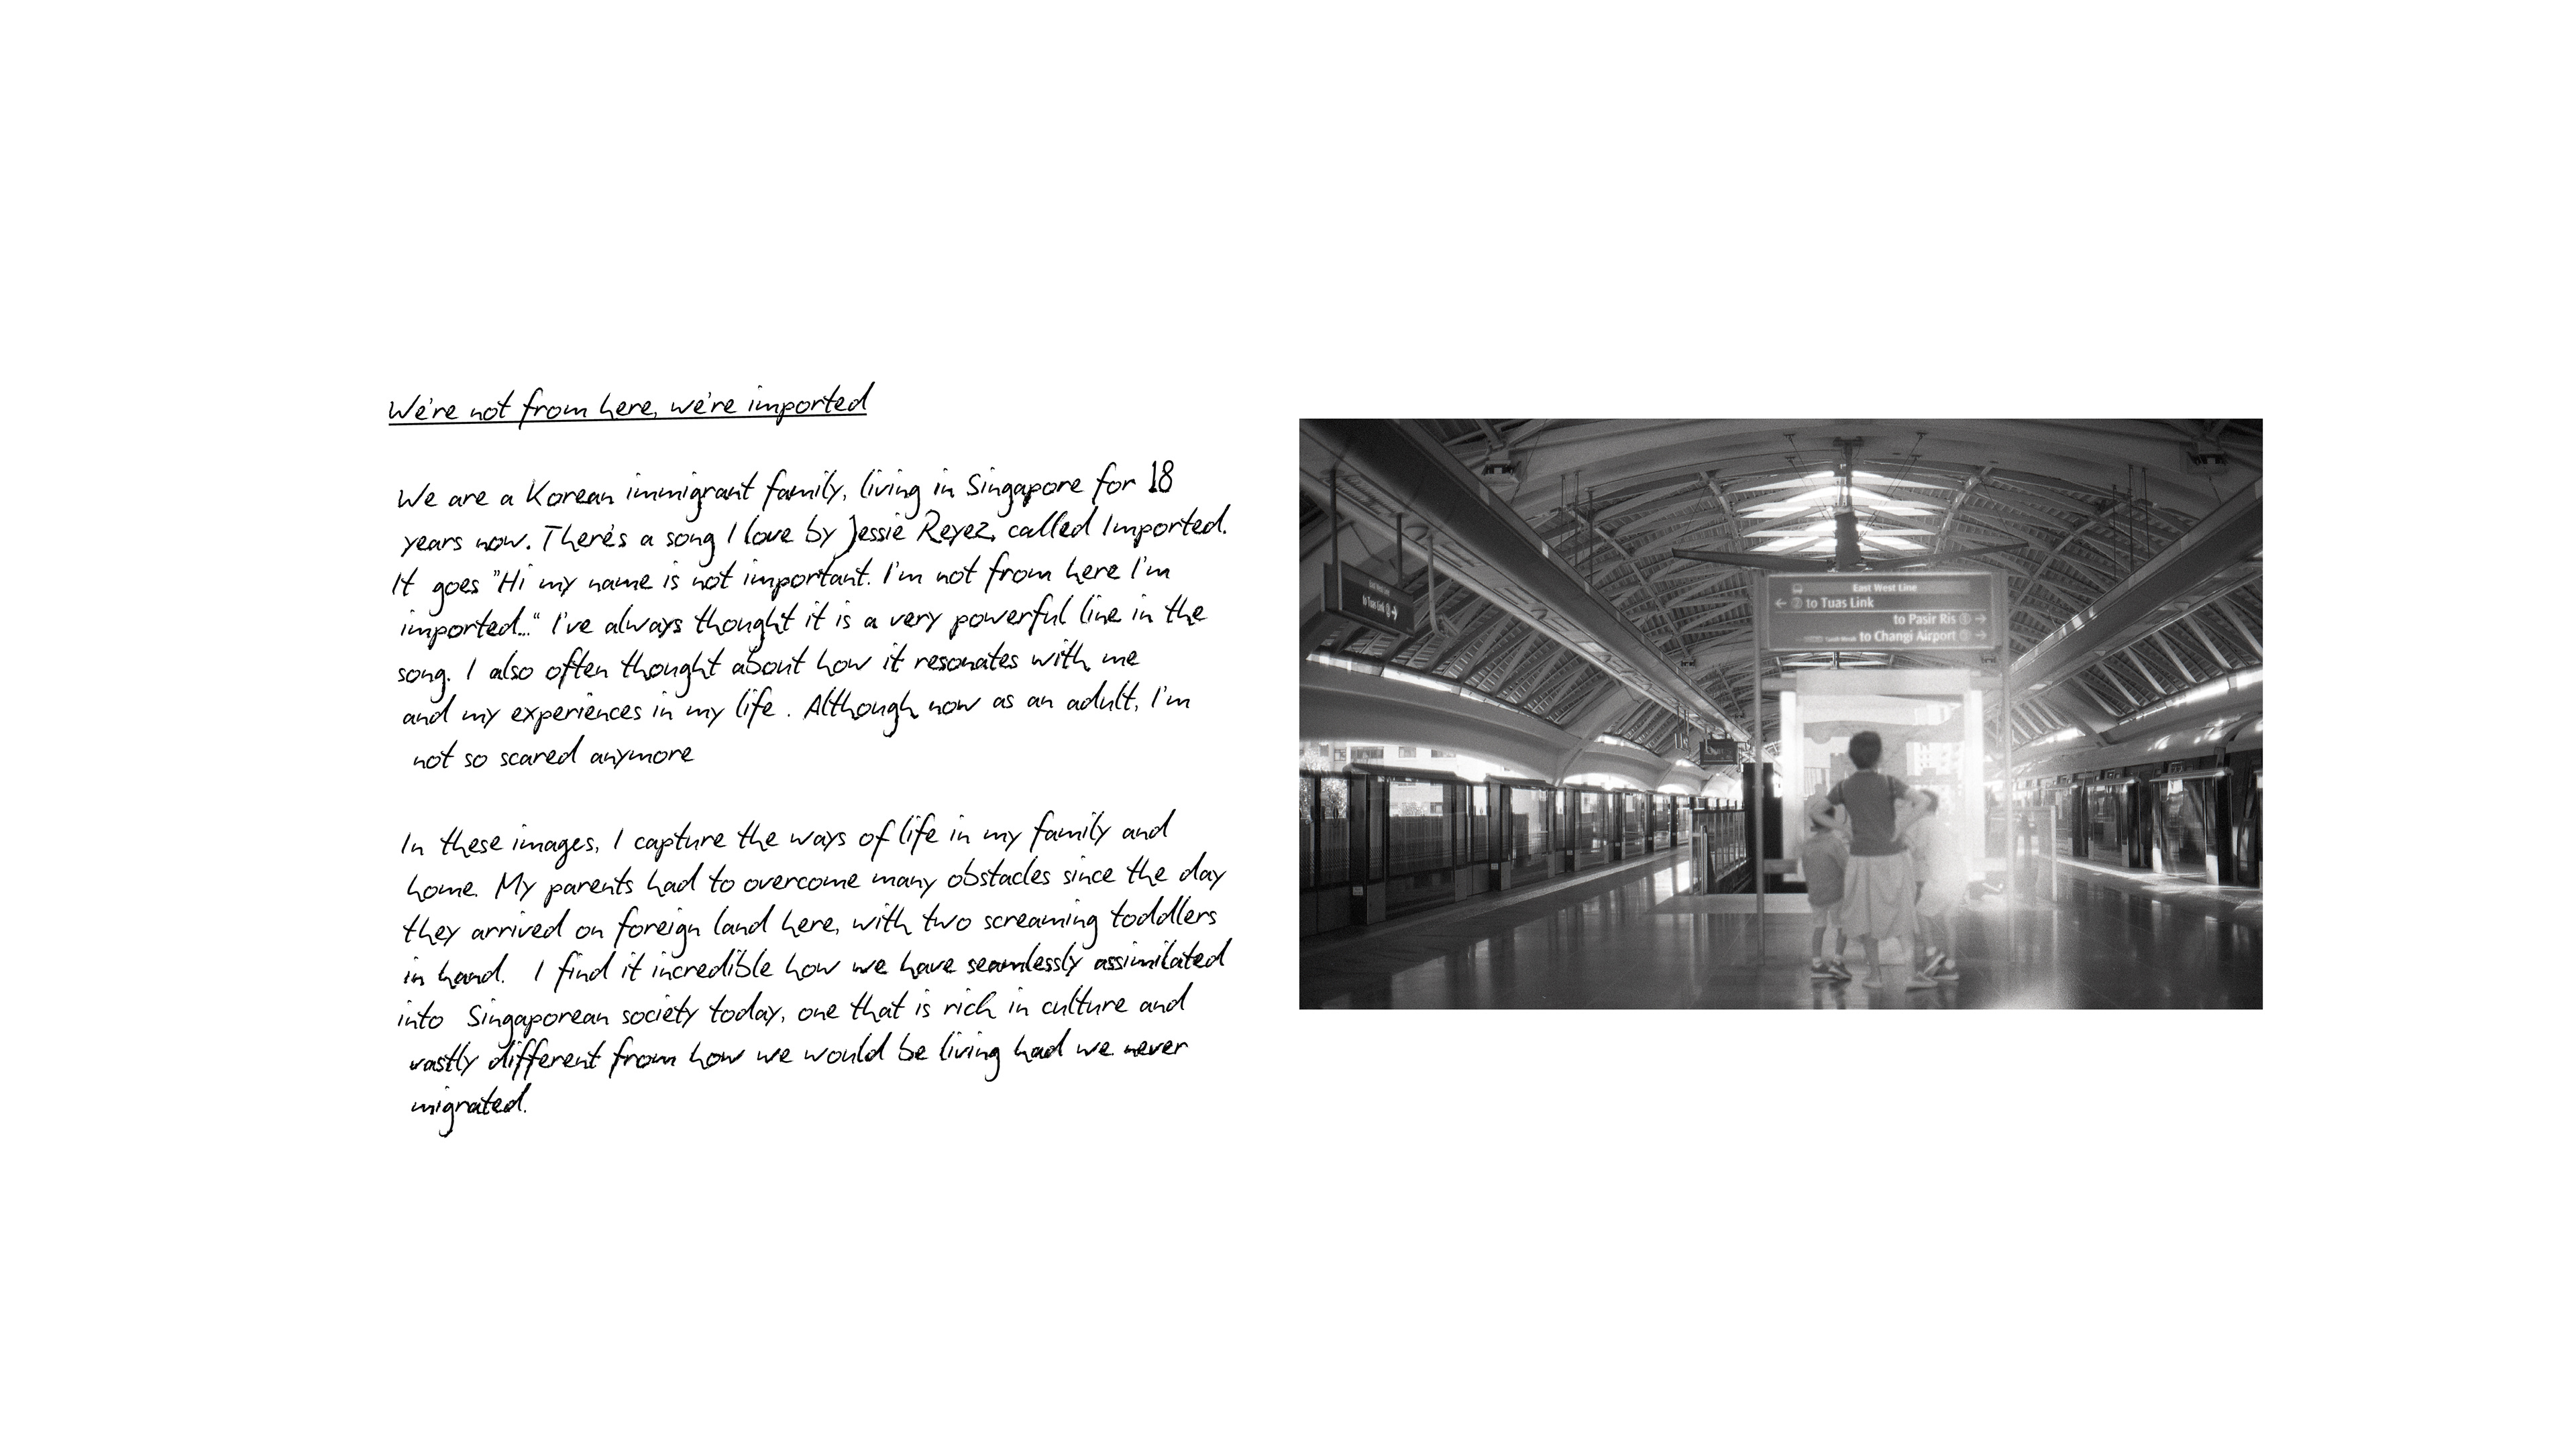 We're not from here, we're imported
We are a Korean immigrant family, living in Singapore for 18
years now. There's a song I love by Jessie Reyez, called Imported.
It goes "Hi my name is not important. I'm not from here I'm
imported..." I've always thought it is a very powerful line in the
song. I also often thought about how it resonates with me
and my experiences in my life. Although now as an adult, I'm
not so scared anymore
In these images, I capture the ways of life in my family and
home. My parents had to overcome many obstacles since the day
they arrived on foreign land here, with two screaming toddlers
in hand. I find it incredible how we have seamlessly assimilated
into Singaporean society today, one that is rich in culture and
vastly different from how we would be living had we never
migrated.
East West Line
← to Tuas Link
to Pasir Ris →
to Changi Airport →
to Tuas Link →